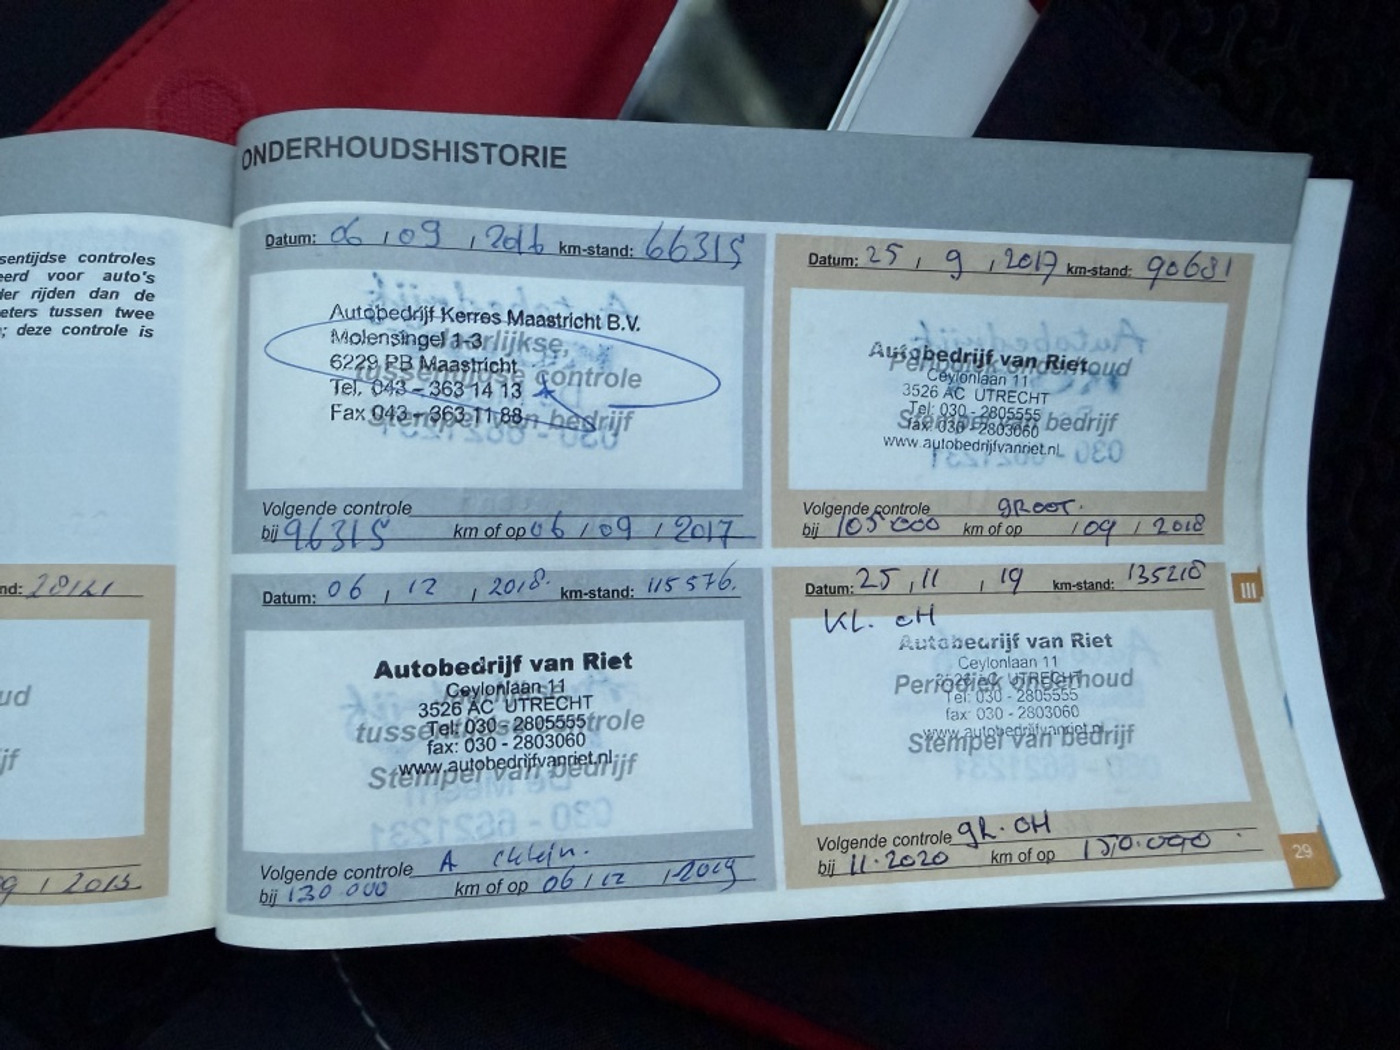 sentijdse controles
eerd voor auto's
der rijden dan de
eters tussen twee
; deze controle is
nd: 28121
ud
jf
09 / 2015
ONDERHOUDSHISTORIE
Datum: 06 / 09 / 2016 km-stand: 66315
Autobedrijf Kerres Maastricht B.V.
Molensingel 1-3
6229 PB Maastricht
Tel. 043 - 363 14 13
Fax 043 - 363 11 88
tussentijdse controle
Stempel van bedrijf
Volgende controle
bij 96315 km of op 06 / 09 / 2017
Datum: 25 / 9 / 2017 km-stand: 90681
Autobedrijf van Riet
Periodiek onderhoud
Ceylonlaan 11
3526 AC UTRECHT
Tel: 030 - 2805555
Stempel van bedrijf
fax: 030 - 2803060
www.autobedrijfvanriet.nl
Volgende controle groot.
bij 105000 km of op / 09 / 2018
Datum: 06 / 12 / 2018. km-stand: 115576.
Autobedrijf van Riet
Ceylonlaan 11
3526 AC UTRECHT
tussentijdse controle
Tel: 030 - 2805555
fax: 030 - 2803060
www.autobedrijfvanriet.nl
Stempel van bedrijf
Volgende controle A
bij 130 000 km of op 06 / 12 / 2019
Datum: 25 / 11 / 19 km-stand: 135218
KL. OH
Autobedrijf van Riet
Ceylonlaan 11
3526 AC UTRECHT
Periodiek onderhoud
Tel: 030 - 2805555
fax: 030 - 2803060
www.autobedrijfvanriet.nl
Stempel van bedrijf
Volgende controle gr. OH
bij 11.2020 km of op 150.000
III
29